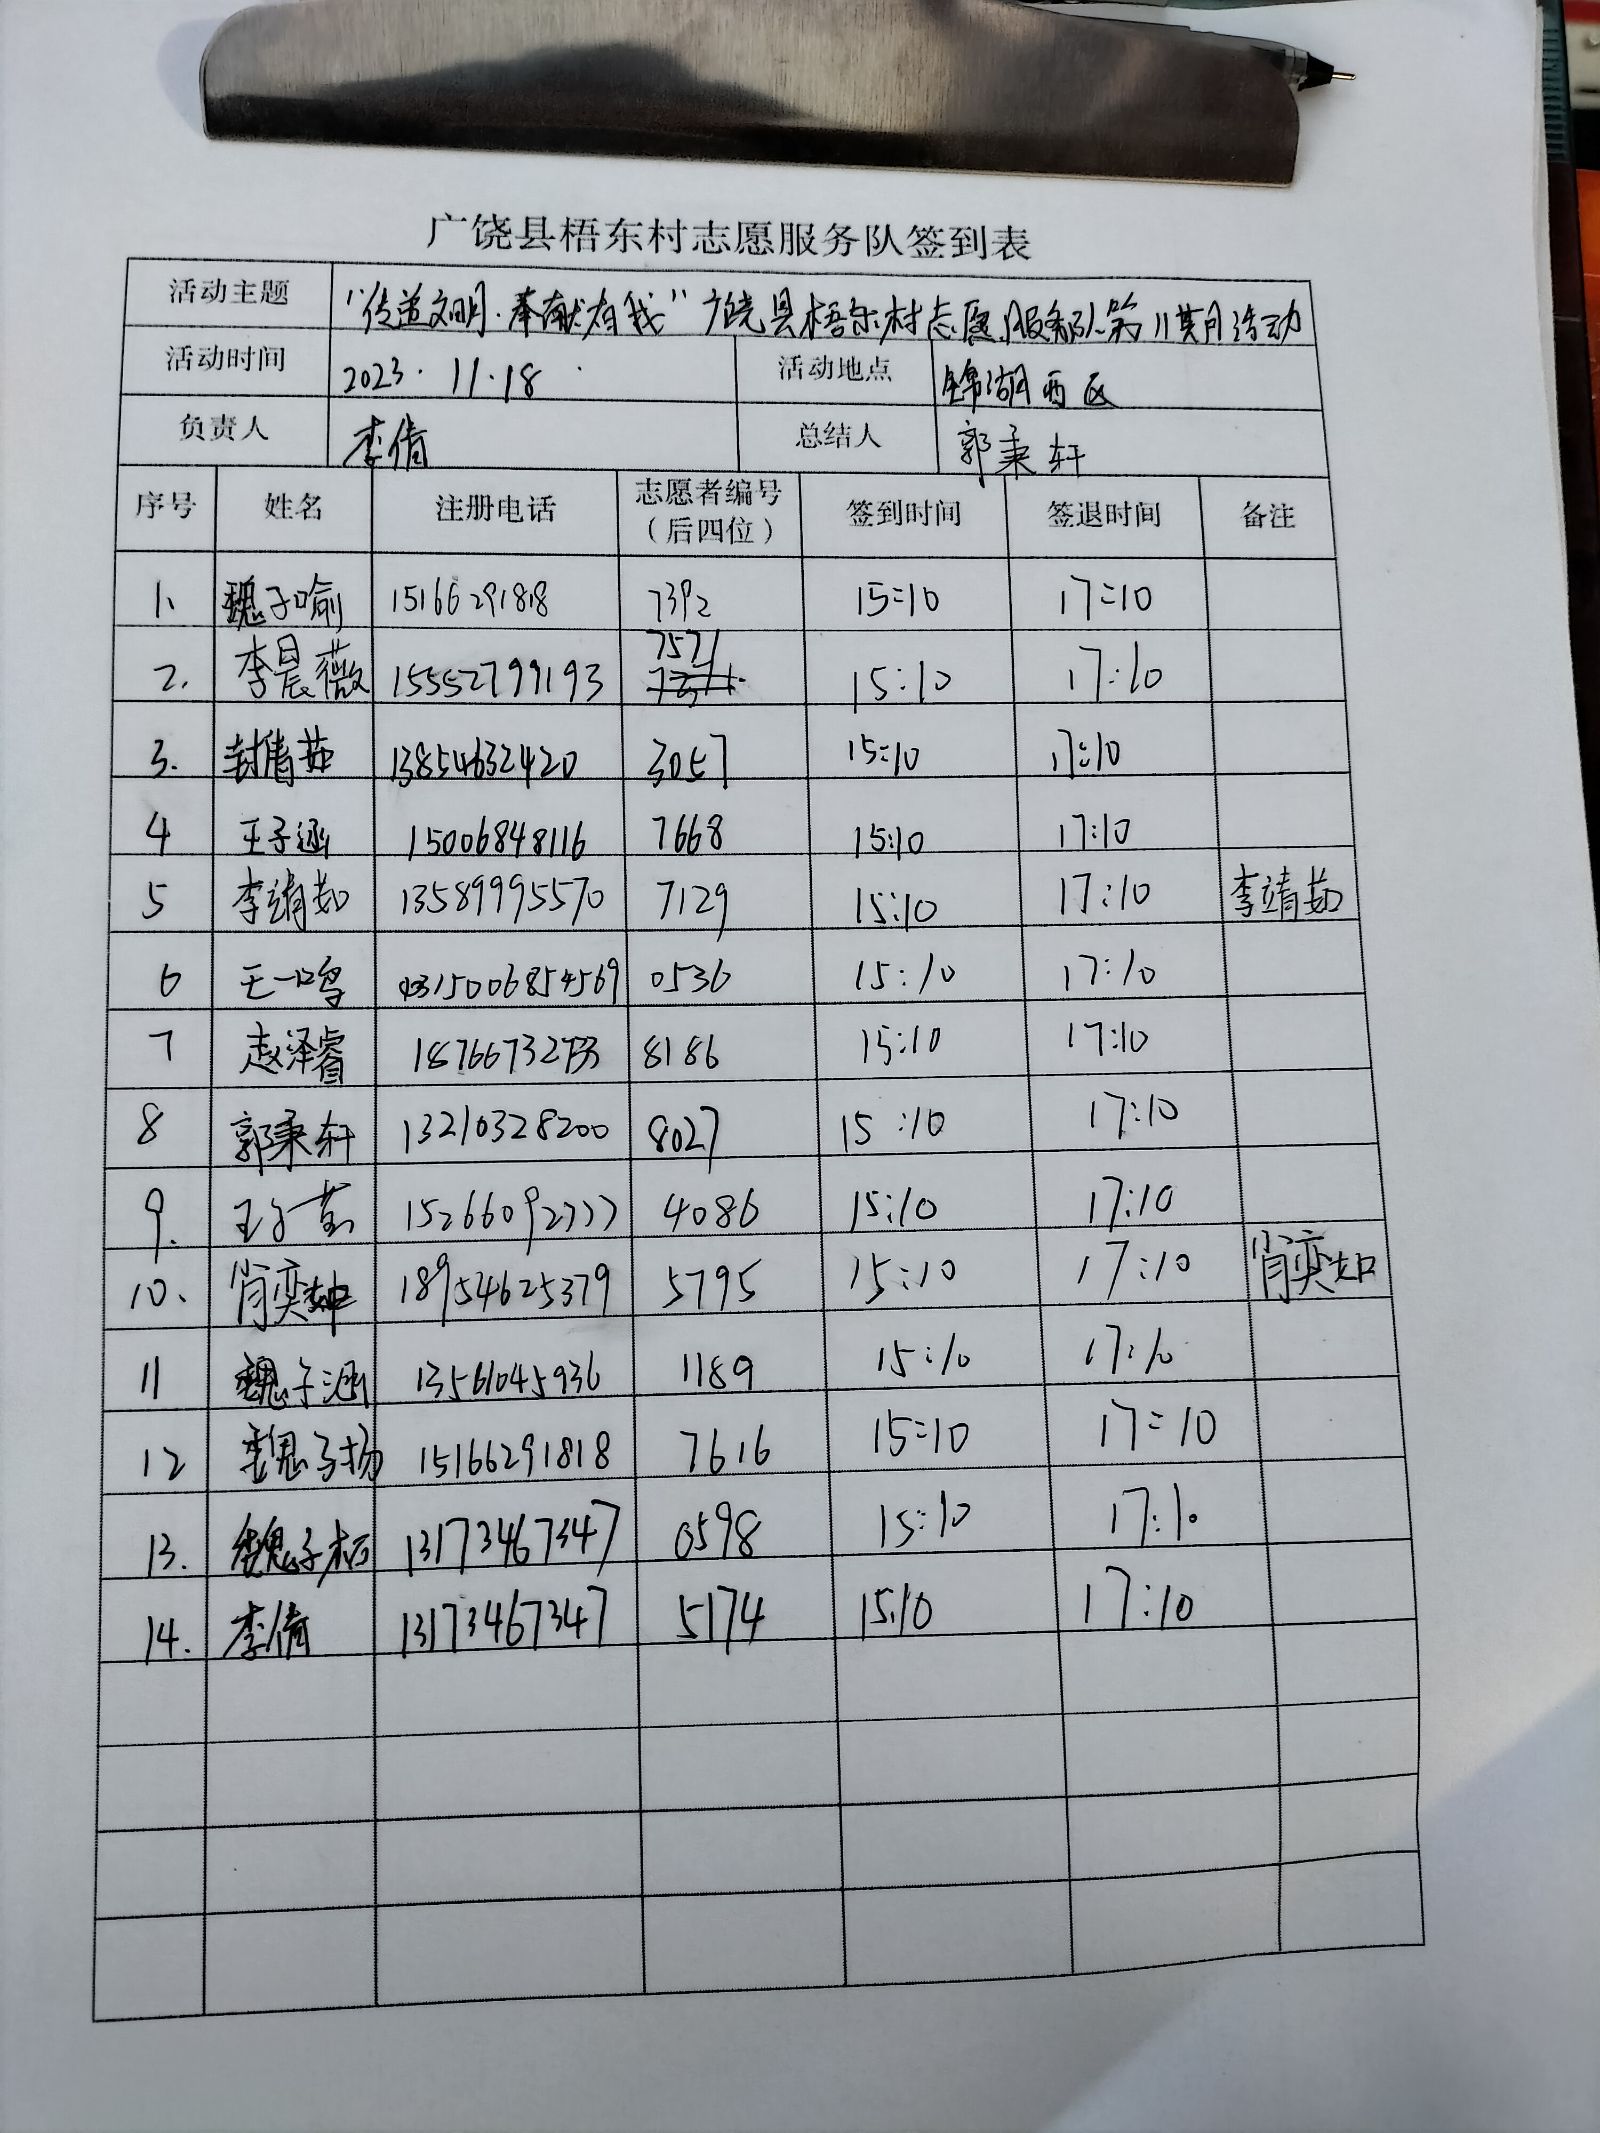 广饶县梧东村志愿服务队签到表
活动主题 “传递文明·奉献有我”广饶县梧东村志愿服务队第11期活动
活动时间 2023.11.18 活动地点 锦湖西区
负责人 李倩 总结人 郭秉轩
序号 姓名 注册电话 志愿者编号（后四位） 签到时间 签退时间 备注
1、 魏子喻 15166291818 7392 15:10 17:10
2. 李晨薇 15552799193 7571 15:10 17:10
3. 封倩茹 13854632420 3057 15:10 17:10
4 王子涵 15006848116 7668 15:10 17:10
5 李靖茹 13589995570 7129 15:10 17:10 李靖茹
6 王一鸣 15006854569 0536 15:10 17:10
7 赵泽睿 187667327 8186 15:10 17:10
8 郭秉轩 13210328200 8027 15:10 17:10
9. 王子 15266092777 4086 15:10 17:10
10. 肖奕如 18954625379 5795 15:10 17:10 肖奕如
11 魏子涵 13561045936 1189 15:10 17:10
12 魏子扬 15166291818 7616 15:10 17:10
13. 魏子栢 13173467347 0598 15:10 17:10
14. 李倩 13173467347 5174 15:10 17:10